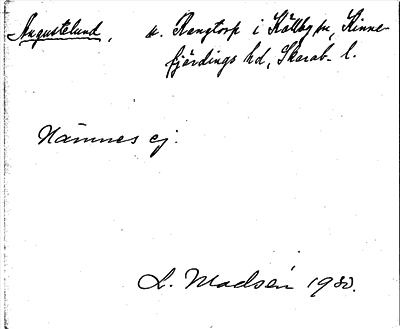 Augustelund, u. Rangtorp i Källby sn, Kinne-
fjärdings hd, Skarab. l.
Nämnes ej.
L. Madsén 1930.